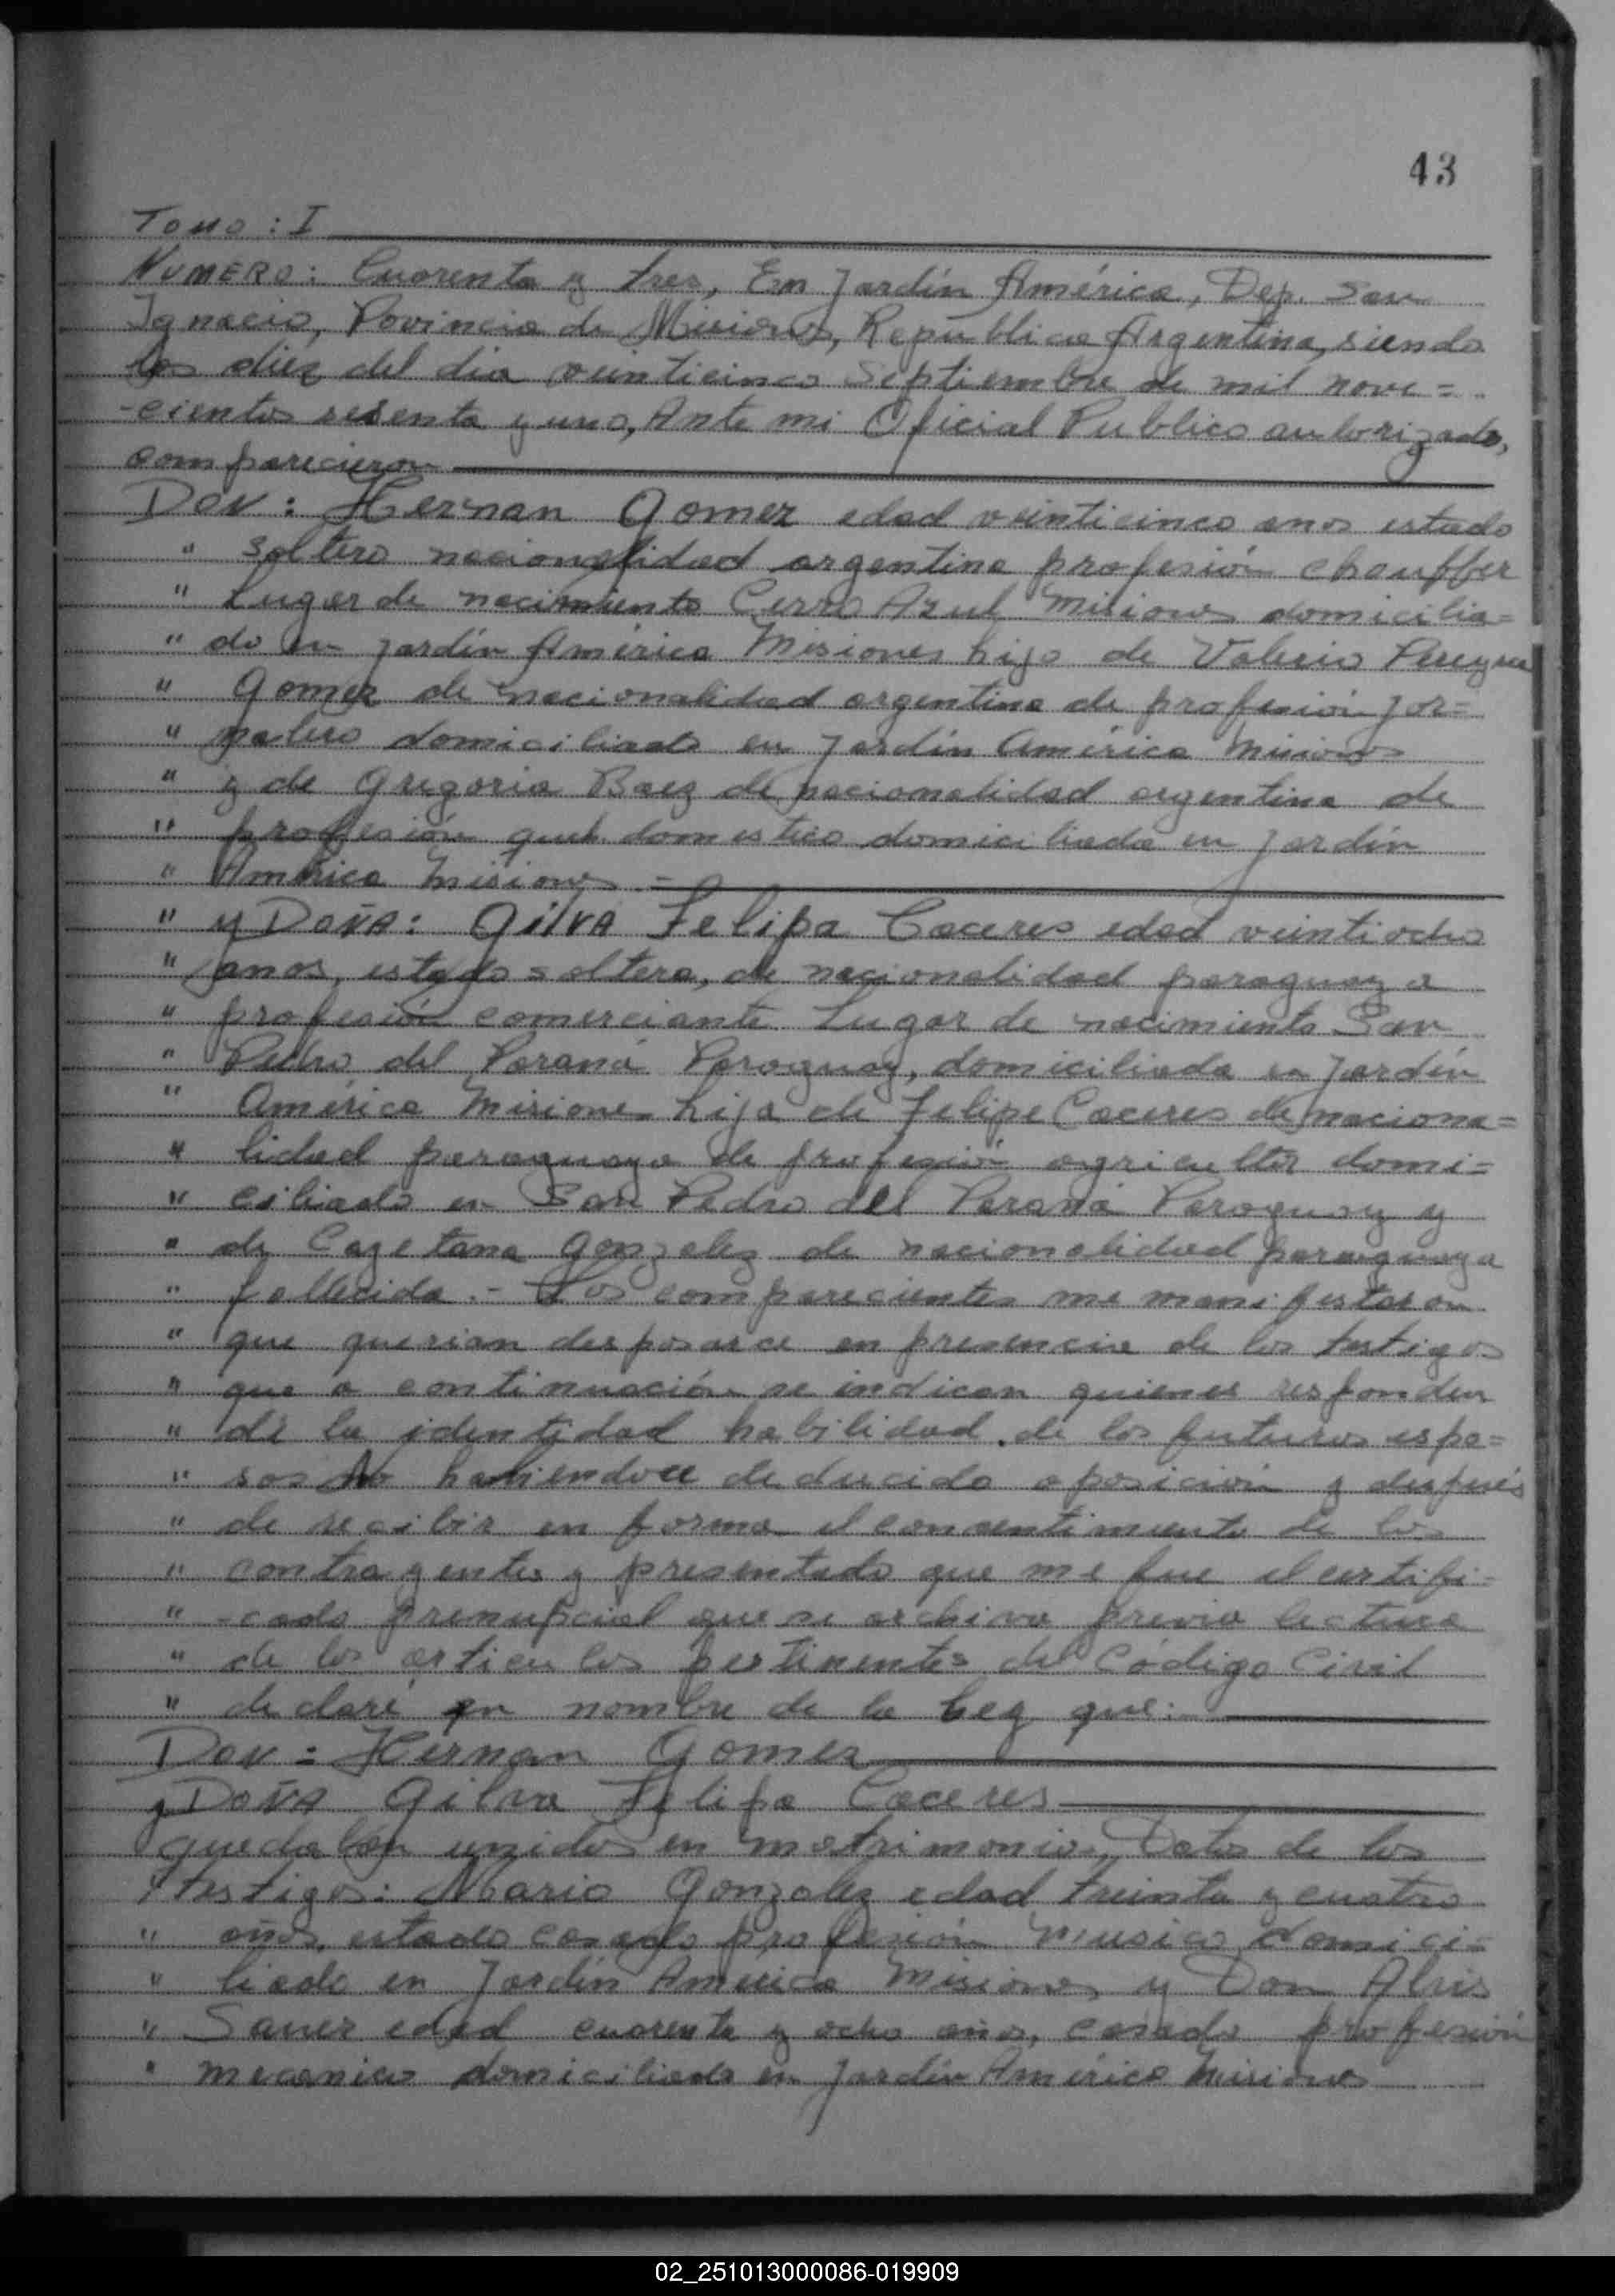 43
Tomo: I
NUMERO: Cuarenta y tres, En Jardín América, Dep. San
Ignacio, Povincia de Misiones, República Argentina, siendo
las diez del dia veinticinco Septiembre de mil nove=
-cientos sesenta y uno, Ante mi Oficial Publico autorizado,
comparecieron
Don: Hernan Gomez edad veinticinco anos estado
" soltero nacionalidad argentina profesión chouffer
" Lugar de nacimiento Cerro Azul Misiones domicilia=
" do en Jardín América Misiones hijo de Valerio
" Gomez de nacionalidad argentina de profesión jor=
" nalero domiciliado en Jardín América Misiones
" y de Gregoria Baez de nacionalidad argentina de
" profesión domestico domiciliada en Jardín
" América Misiones.-
" y Doña: Gilva Felipa Caceres edad veintiocho
" anos, estado soltera, de nacionalidad paraguaya
" profesión comerciante Lugar de nacimiento San
" Pedro del Paraná Paraguay, domiciliada en Jardín
" América Misiones hija de Felipe Caceres de naciona=
" lidad paraguaya de profesión agricultor domi=
" ciliado en San Pedro del Paraná Paraguay y
" de Cayetana Gonzalez de nacionalidad paraguaya
" fallecida.- Los comparecientes me manifestaron
" que querian desposarce en presencia de los testigos
" que a continuación se indican quienes responden
" de la identidad habilidad de los futuros espo=
" sos No habiendoce deducido oposición y después
" de recibir en forma el consentimiento de los
" contrayentes y presentado que me fue el certifi=
" -cado prenupcial que se archiva previa lectura
" de los articulos pertinentes del Código Civil
" declaré en nombre de la Ley que:
Don: Hernan Gomez
y Doña Gilva Felipa Caceres
quedaban unidos en matrimonio, Datos de los
testigos: Mario Gonzalez edad treinta y cuatro
" años, estado casado profesión musico domici=
" liado en Jardín América Misiones y Don
" Sauer edad cuarenta y ocho años, casado profesión
" mecanico domiciliado en Jardín América Misiones
02_251013000086-019909